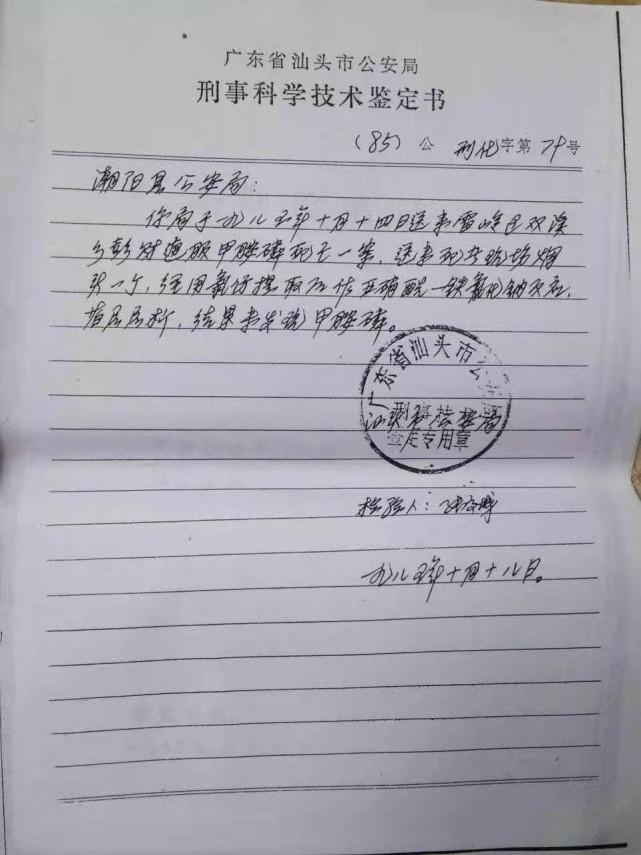 广东省汕头市公安局
刑事科学技术鉴定书
(85) 公 刑化字第79号
潮阳县公安局:
你局于一九八五年十月十四日送来雷岭区双溪
乡彭财通服甲胺磷死亡一案,送来死者现场烟
头一个,经用氯仿提取后作亚硝酰一铁氰化钠反应,
薄层层析,结果未发现甲胺磷。
广东省汕头市公
汕头市公安局
鉴定专用章
检验人:
一九八五年十月十八日。